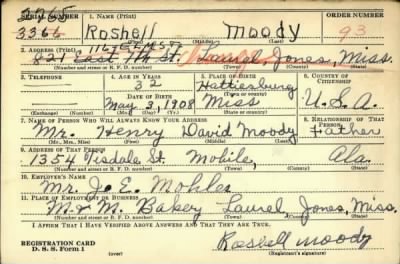 3265
SERIAL NUMBER 1. NAME (Print) ORDER NUMBER
3366 Roshell Moody 93
(First) (Middle) (Last)
2. ADDRESS (Print)
821 East 7th St. Laurel, Jones, Miss.
(Number and street or R. F. D. number) (Town) (County) (State)
3. TELEPHONE 4. AGE IN YEARS 5. PLACE OF BIRTH 6. COUNTRY OF CITIZENSHIP
32 Hattiesburg
DATE OF BIRTH (Town or county)
May 3, 1908 Miss U.S.A.
(Exchange) (Number) (Mo.) (Day) (Yr.) (State or country)
7. NAME OF PERSON WHO WILL ALWAYS KNOW YOUR ADDRESS 8. RELATIONSHIP OF THAT PERSON
Mr. Henry David Moody Father
(Mr., Mrs., Miss) (First) (Middle) (Last)
9. ADDRESS OF THAT PERSON
1354 Tisdale St. Mobile, Ala.
(Number and street or R. F. D. number) (Town) (County) (State)
10. EMPLOYER'S NAME
Mr. J. E. Mohler
11. PLACE OF EMPLOYMENT OR BUSINESS
M & M. Bakery Laurel, Jones, Miss.
(Number and street or R. F. D. number) (Town) (County) (State)
I AFFIRM THAT I HAVE VERIFIED ABOVE ANSWERS AND THAT THEY ARE TRUE.
REGISTRATION CARD
D. S. S. Form 1 (over) Roshell Moody
(Registrant's signature)